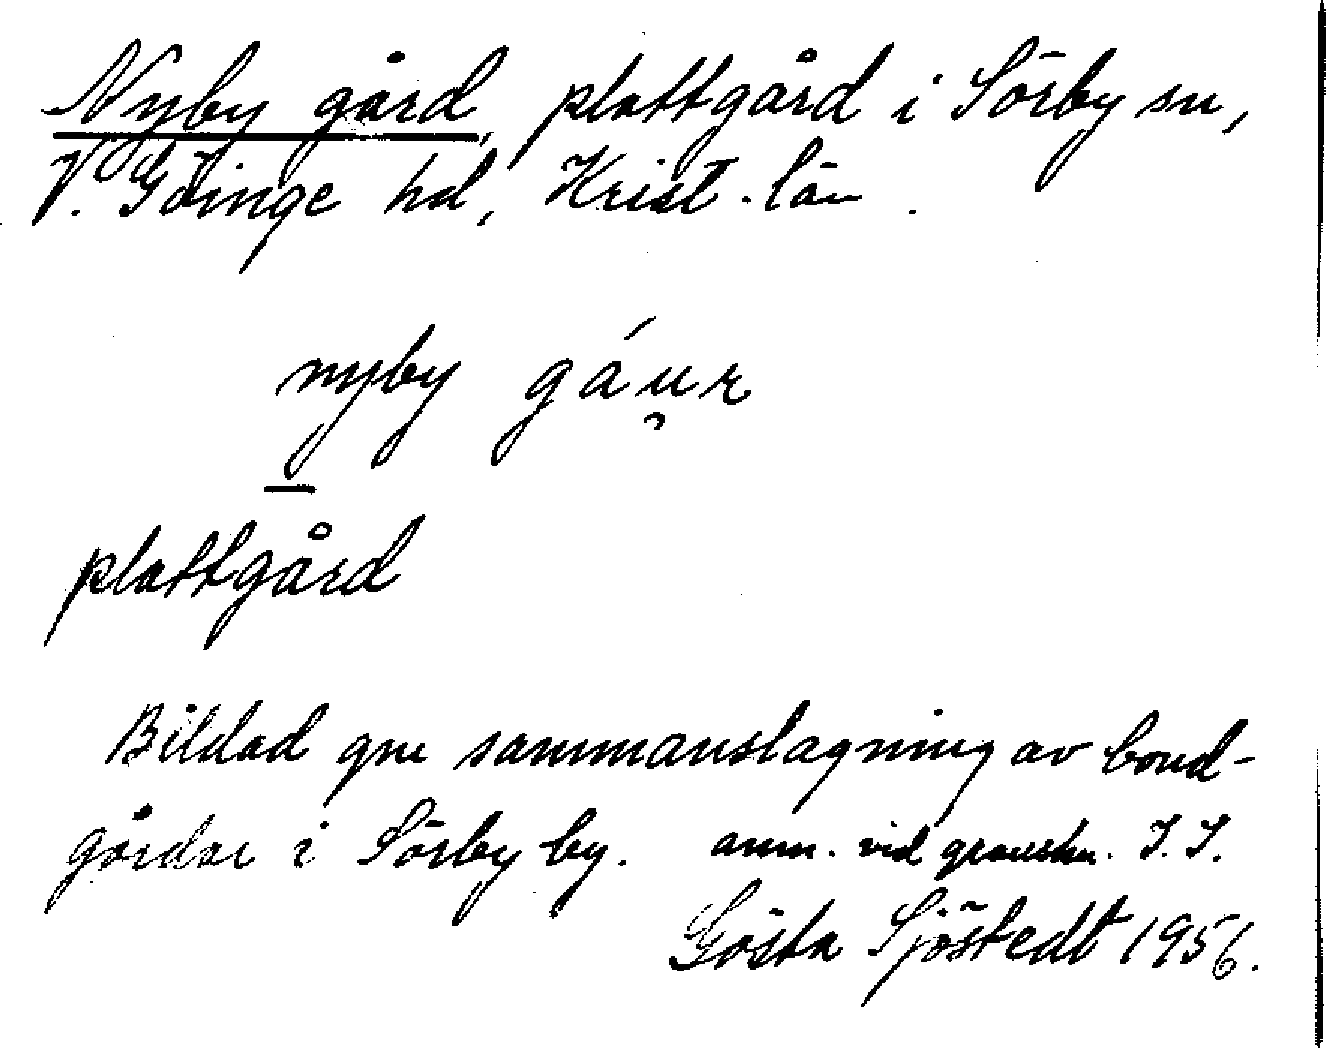 Nyby gård, plattgård i Sörby sn,
V. Göinge hd, Krist. län.
nyby gáu̯r
plattgård
Bildad gm sammanslagning av bond-
gårdar i Sörby by. anm. vid granskn. I. I.
Gösta Sjöstedt 1956.